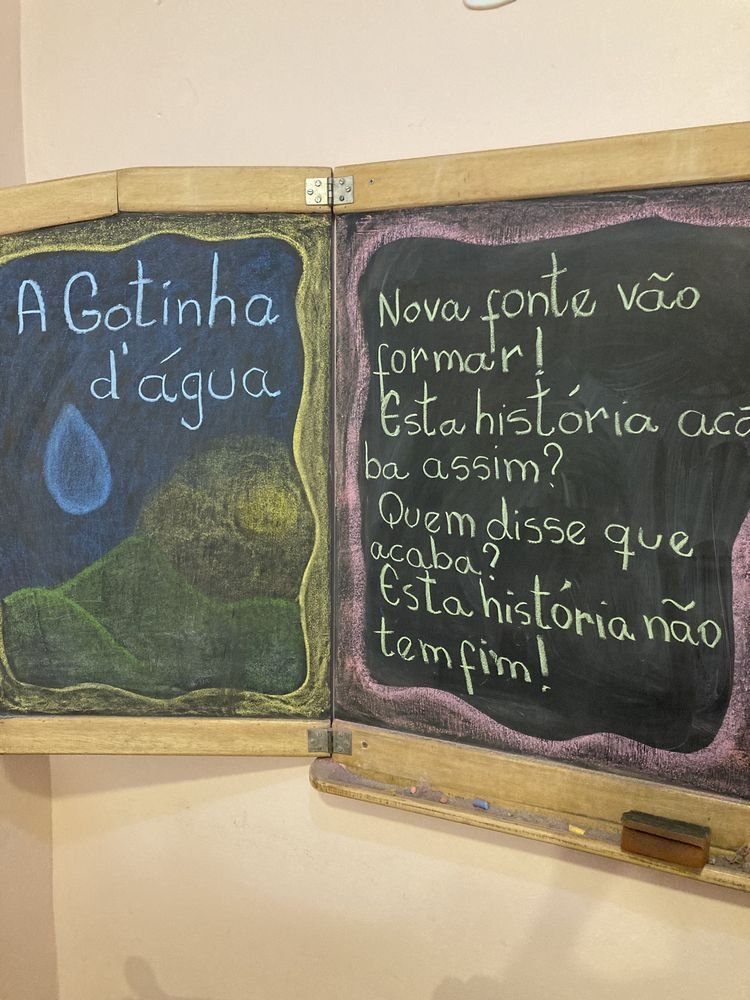 A Gotinha
d'água
Nova fonte vão
formar!
Esta história aca
ba assim?
Quem disse que
acaba?
Esta história não
tem fim!